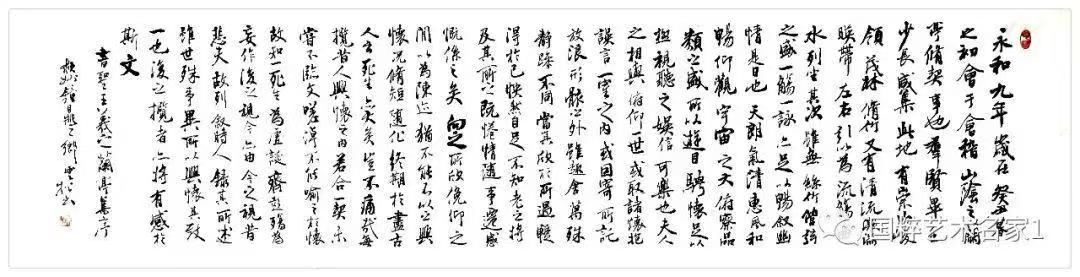 永和九年歲在癸丑暮
之初會于會稽山陰之蘭
亭脩契事也羣賢畢至
少長咸集此地有崇山峻
領茂林脩竹又有清流激
暎帶左右引以為流觴
水列坐其次雖無絲竹管弦
之盛一觴一詠亦足以暢叙幽
情是日也天朗氣清惠風和
暢仰觀宇宙之大俯察品
類之盛所以遊目騁懷足以
極視聽之娛信可樂也夫人
之相與俯仰一世或取諸懷抱
悟言一室之內或因寄所託
放浪形骸之外雖趣舍萬殊
靜躁不同當其欣於所遇暫
得於己怏然自足不知老之將
及其所之既惓情隨事遷感
慨係之矣向之所欣俛仰之
間以為陳迹猶不能不以之興
懷況脩短隨化終期於盡古
人云死生亦大矣豈不痛哉每
攬昔人興懷之由若合一契未
嘗不臨文嗟悼不能喻之於懷
故知一死生為虛誕齊彭殤為
妄作後之視今亦由今之視昔
悲夫故列叙時人錄其所述
雖世殊事異所以興懷其致
一也後之攬者亦將有感於
斯文
書聖王羲之蘭亭集序
国粹艺术名家1